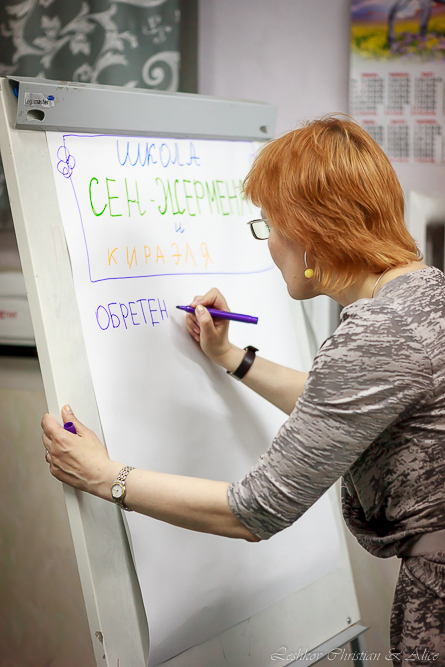 ШКОЛА
СЕН-ЖЕРМЕНА
и
КИРАЭЛЯ
ОБРЕТЕН
Leshkov Christian & Alice